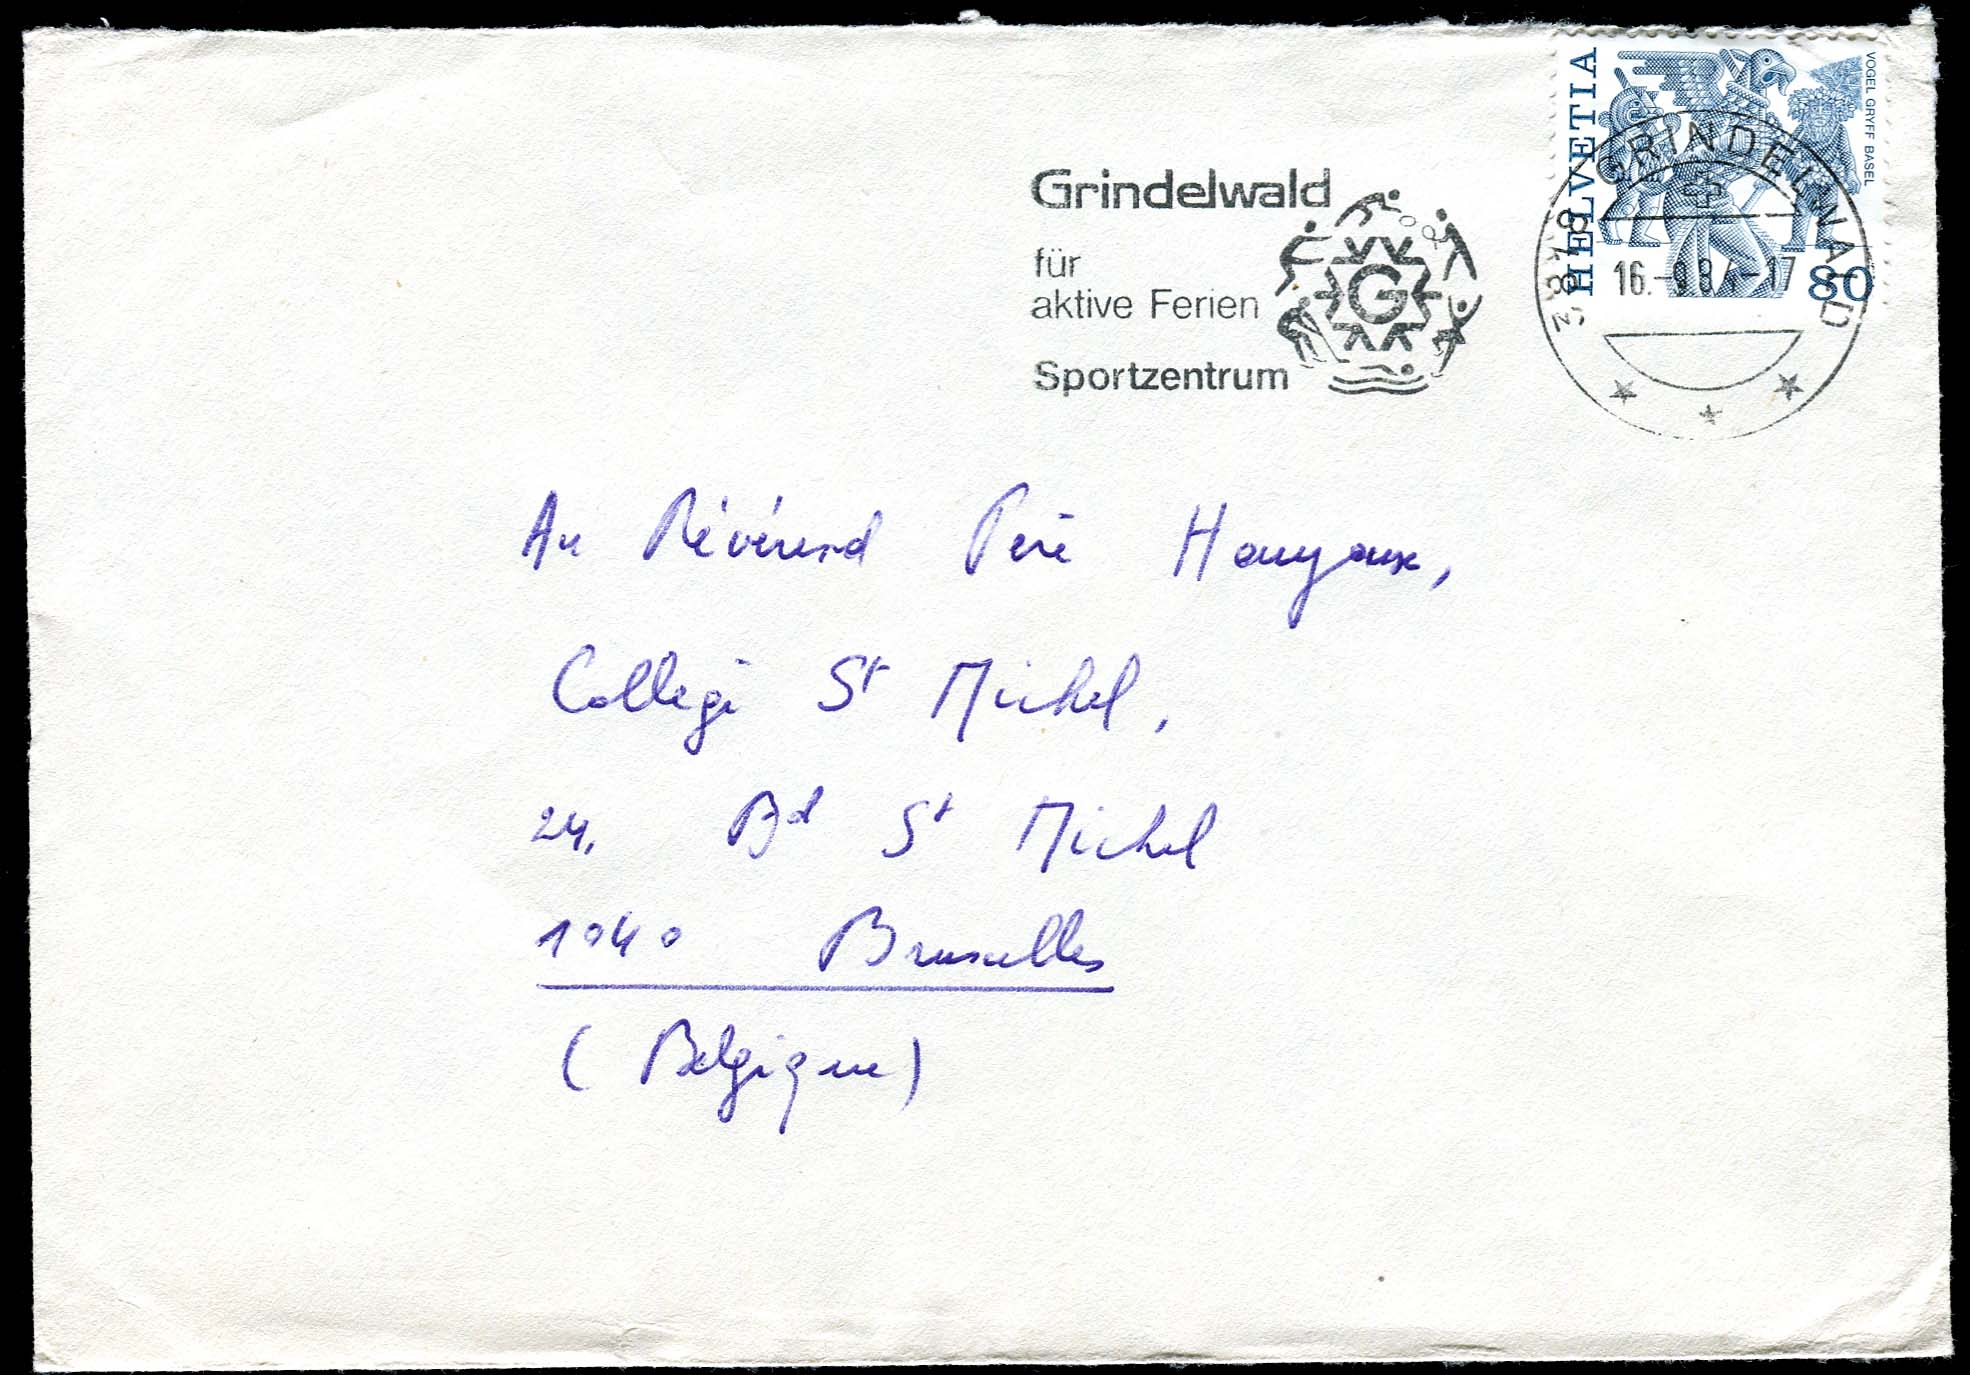 HELVETIA
VOGEL GRYFF BASEL
80
3818 GRINDELWALD
Grindelwald
für
aktive Ferien
Sportzentrum
G
Au Révérend Père Houyoux,
Collège St Michel,
24, Bd St Michel
1040 Bruxelles
(Belgique)